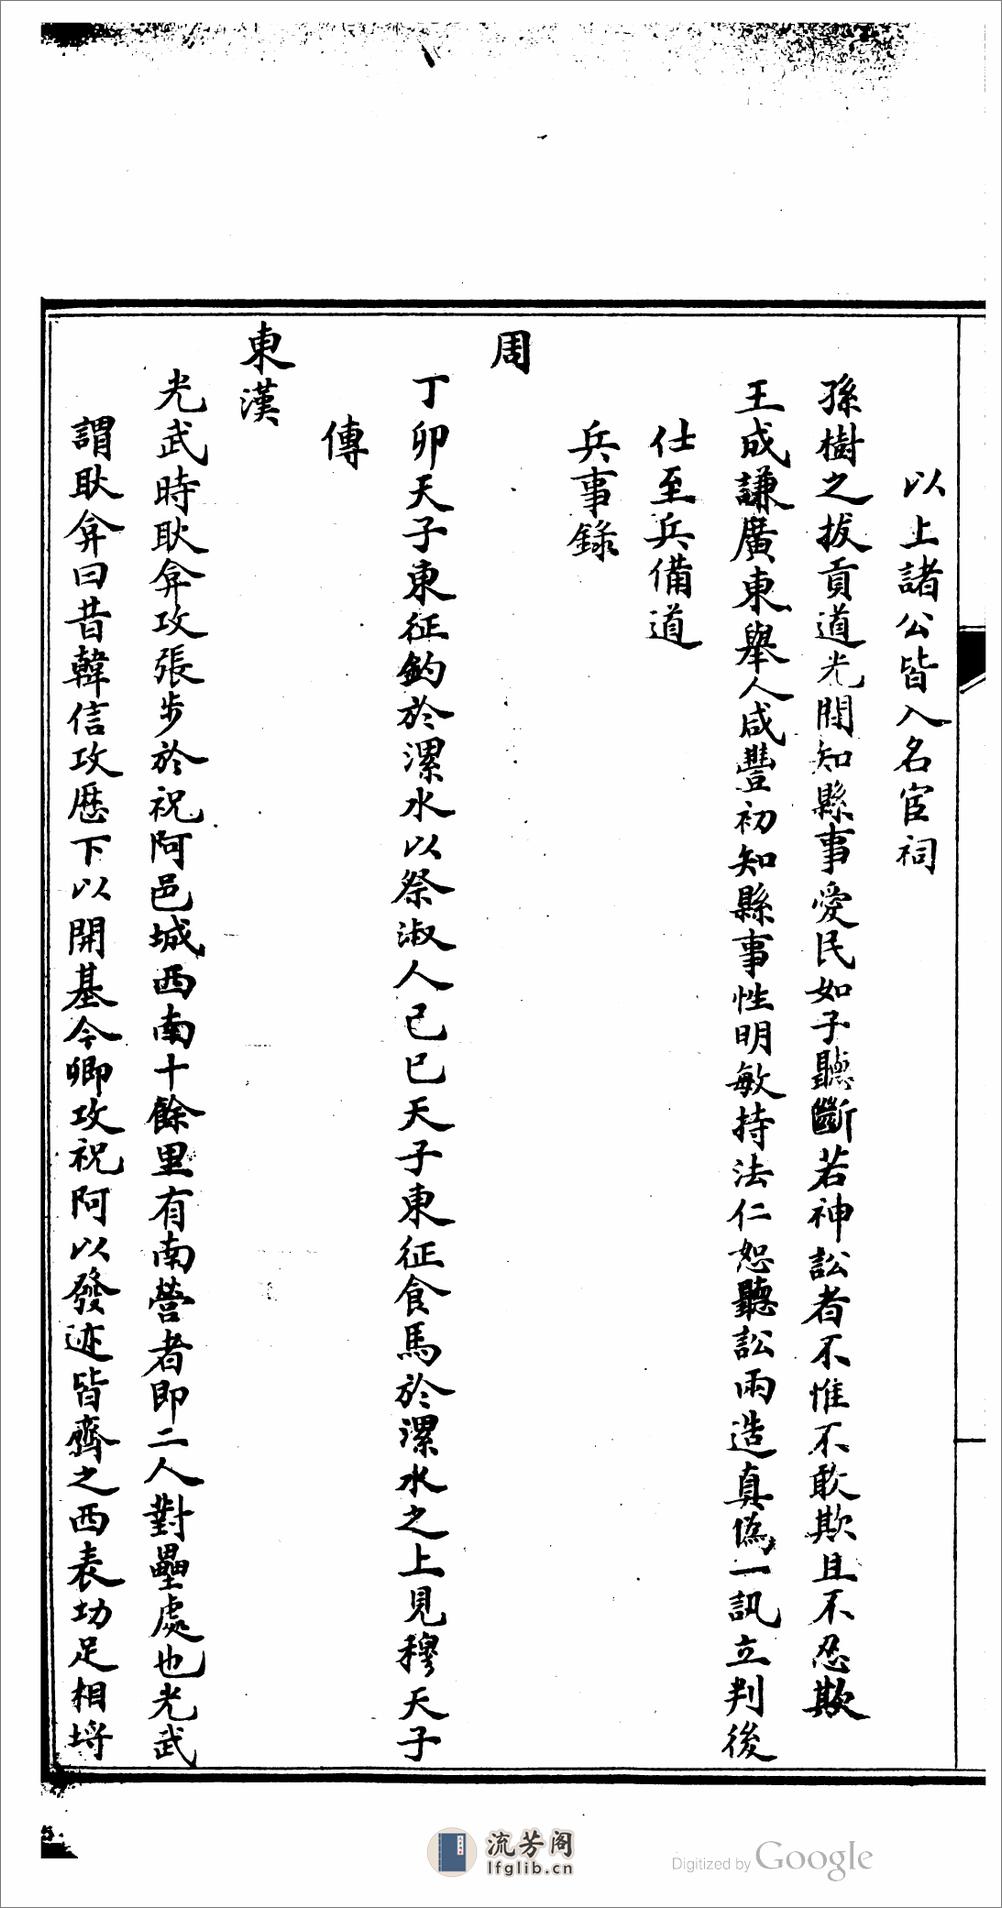 以上諸公皆入名宦祠
孫樹之拔貢道光間知縣事愛民如子聽斷若神訟者不惟不敢欺且不忍欺
王成謙廣東舉人咸豐初知縣事性明敏持法仁恕聽訟兩造真僞一訊立判後
仕至兵備道
兵事錄
周
丁卯天子東征釣於漯水以祭淑人己巳天子東征食馬於漯水之上見穆天子
傳
東漢
光武時耿弇攻張步於祝阿邑城西南十餘里有南營者即二人對壘處也光武
謂耿弇曰昔韓信攻歷下以開基今卿攻祝阿以發迹皆齊之西表功足相埒
流芳阁
lfglib.cn
Digitized by Google